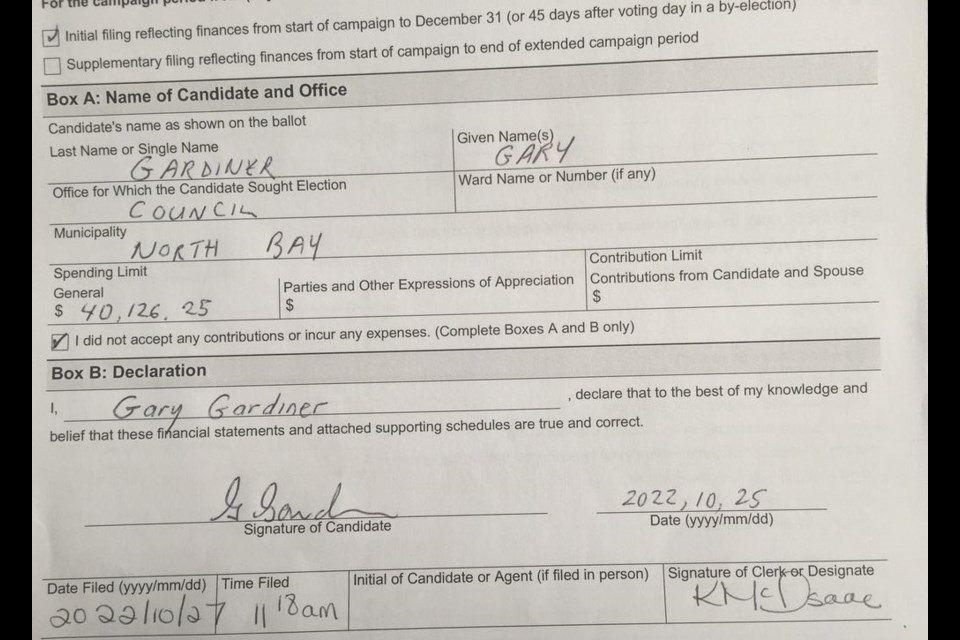 For the campaign
Initial filing reflecting finances from start of campaign to December 31 (or 45 days after voting day in a by-election)
Supplementary filing reflecting finances from start of campaign to end of extended campaign period
Box A: Name of Candidate and Office
Candidate's name as shown on the ballot
Last Name or Single Name
GARDINER
Given Name(s)
GARY
Office for Which the Candidate Sought Election
COUNCIL
Ward Name or Number (if any)
Municipality
NORTH BAY
Spending Limit
General
$ 40,126.25
Parties and Other Expressions of Appreciation
$
Contribution Limit
Contributions from Candidate and Spouse
$
I did not accept any contributions or incur any expenses. (Complete Boxes A and B only)
Box B: Declaration
I, Gary Gardiner , declare that to the best of my knowledge and
belief that these financial statements and attached supporting schedules are true and correct.
G Gard
Signature of Candidate
2022,10,25
Date (yyyy/mm/dd)
Date Filed (yyyy/mm/dd)
2022/10/27
Time Filed
11 18am
Initial of Candidate or Agent (if filed in person)
Signature of Clerk or Designate
K McIsaac